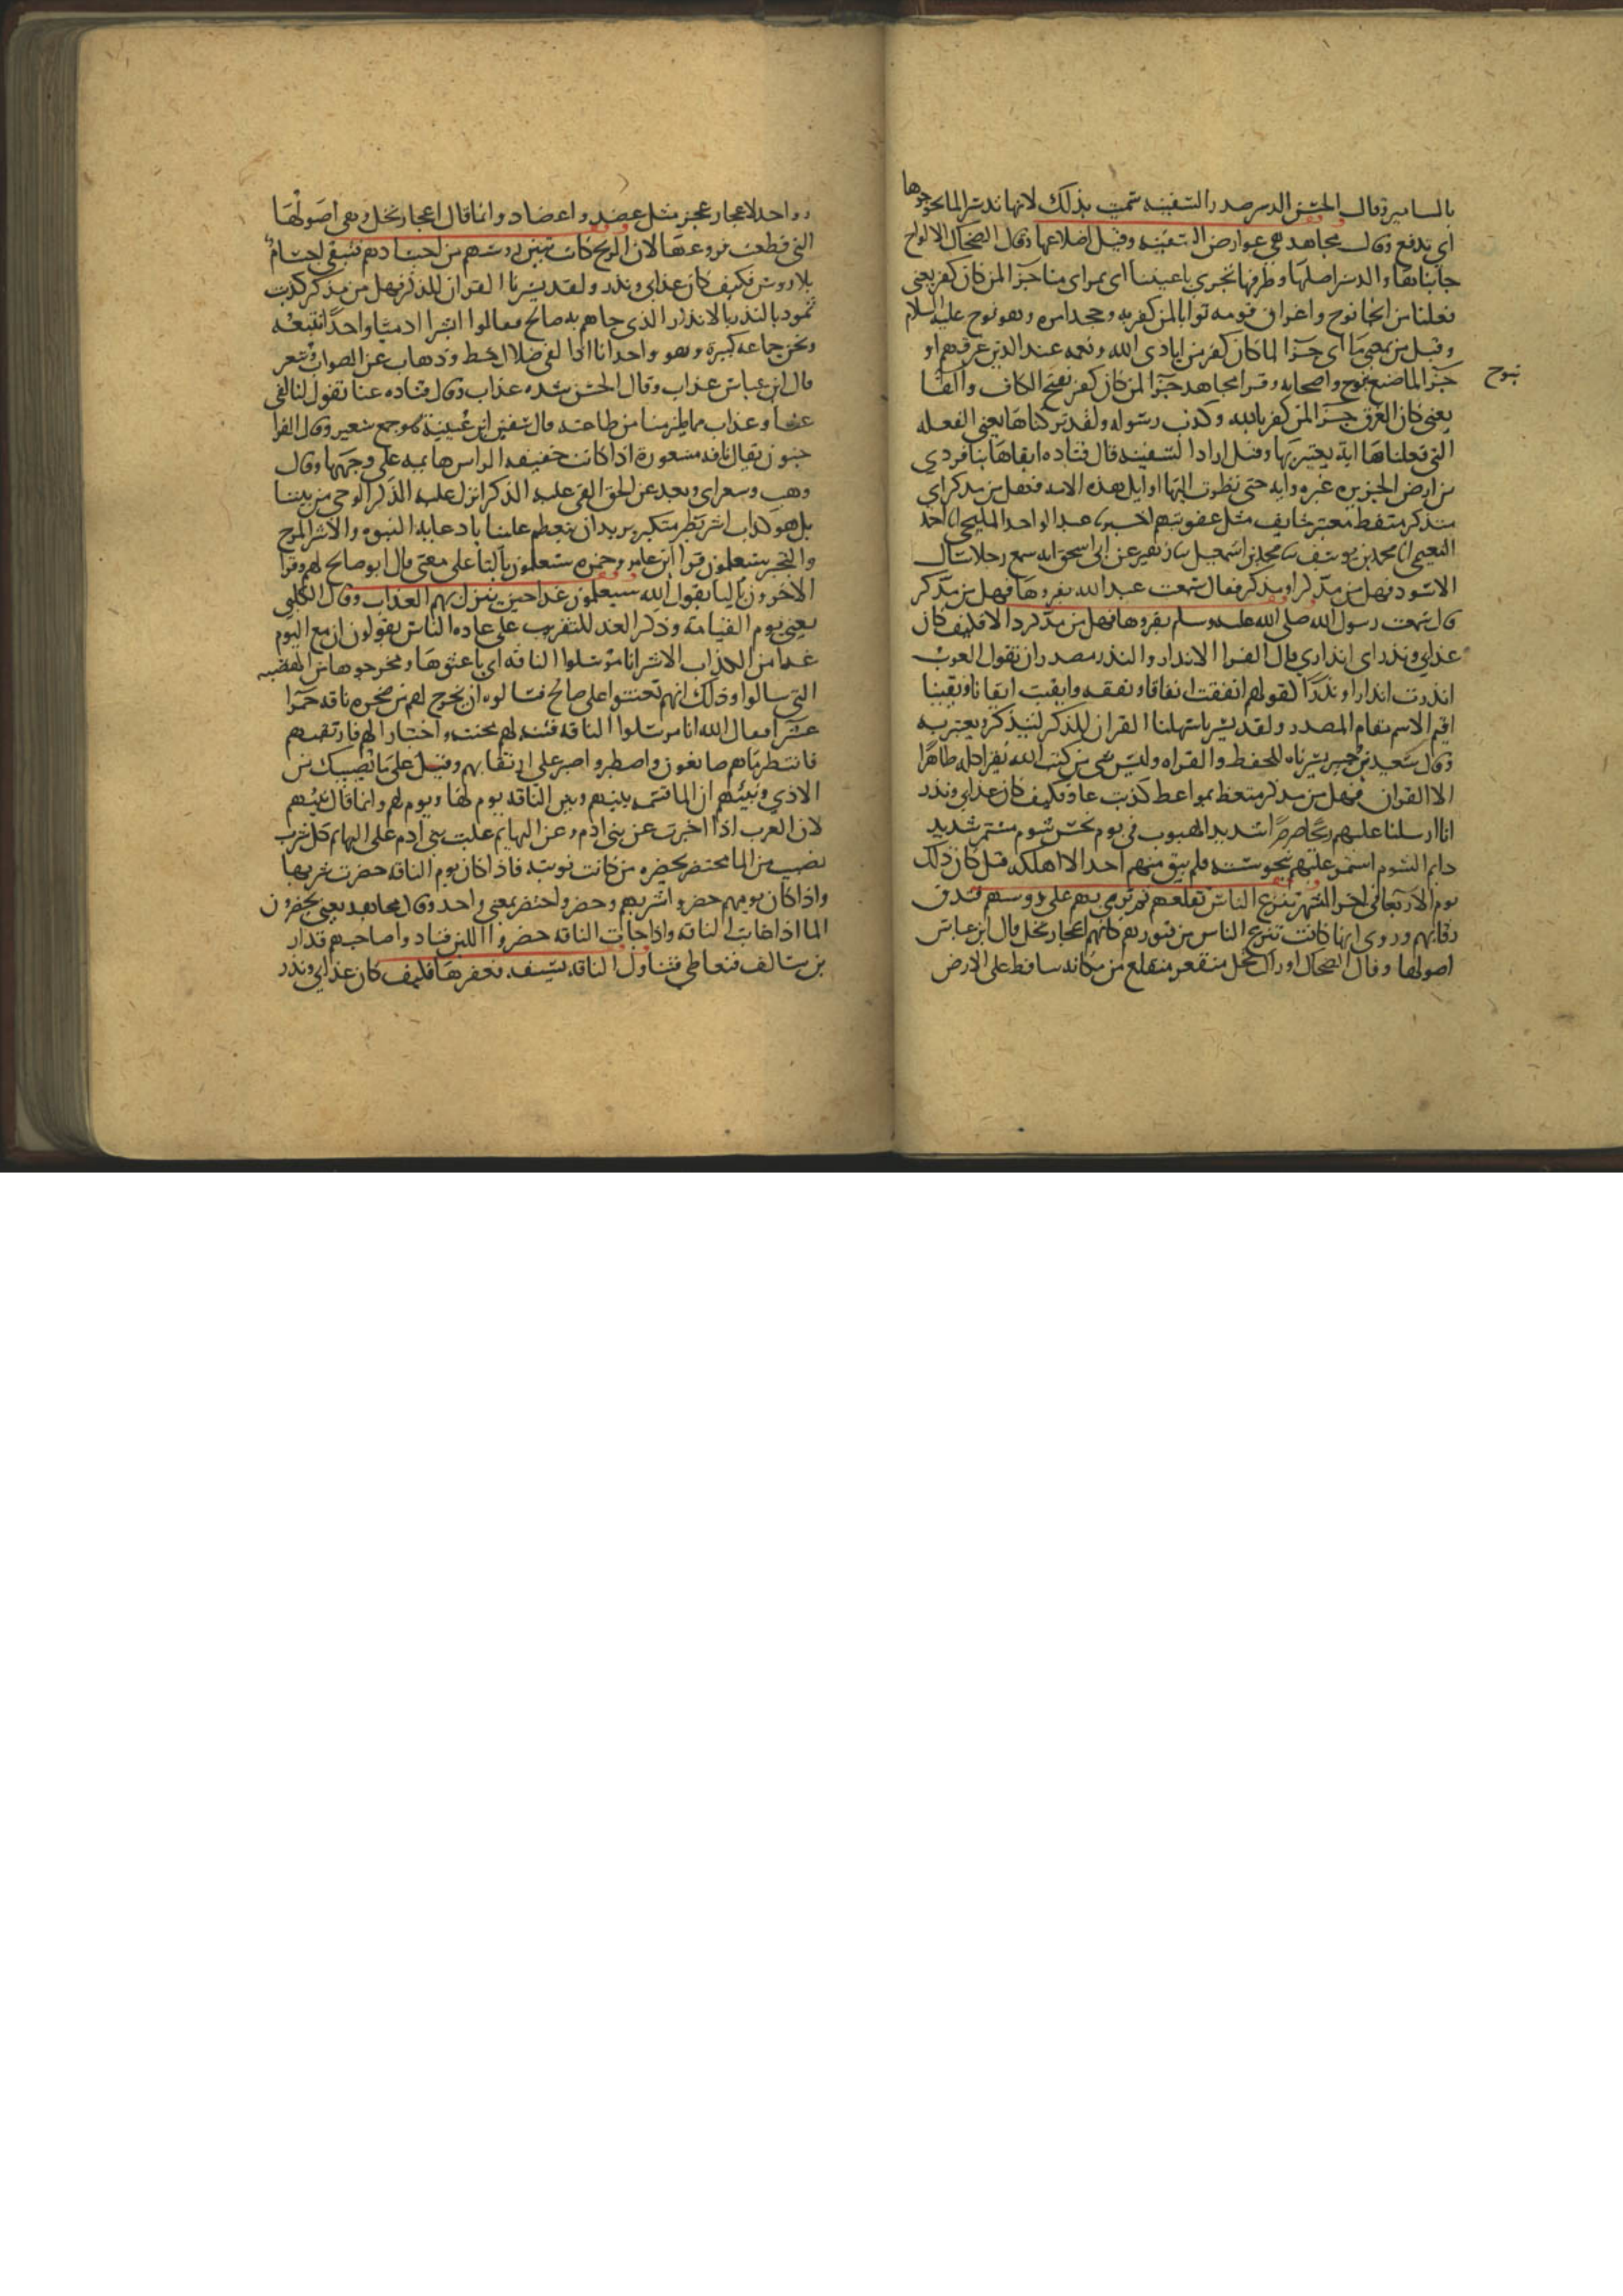 بالمسامير وقال الحسن الدسر صدر السفينة سميت بذلك لانها تدسر الما بجوجوها
اي تدفع وقال مجاهد هي عوارض السفينة وقيل اضلاعها وقال الضحاك الالواح
جانباها والدسر اصلها وطرفها تجري باعيننا اى بمراى منا جزا لمن كان كفر يعني
فعلنا من انجا نوح واغراق قومه ثوابا لمن كفر به وجحد امره وهو نوح عليه السلام
وقيل من بمعنى ما اى جزا لما كان كفر من ايادى الله ونعمه عند الذين غرقهم او
جزا لما صنع بنوح واصحابه وقرا مجاهد جزا لمن كان كفر بفتح الكاف والفا
نوح
يعني كان الغرق جزا لمن كفر بالله وكذب رسوله ولقد تركناها يعني الفعله
التي فعلناها اية يعتبر بها وقيل اراد السفينه قال قتاده ابقاها بباقردى
من ارض الجزيره عبره وايه حتى نظرت اليها اوايل هذه الامه فهل من مدكر اي
متذكر متعظ معتبر خايف مثل عقوبتهم اخبرنا عبد الواحد المليحي انا احمد
النعيمي انا محمد بن يوسف ثنا محمد بن اسمعيل ثنا ابو نعيم عن ابي اسحق انه سمع رجلا سال
الاسود فهل من مدكر او مذكر فقال سمعت عبد الله يقروها فهل من مدكر
قال سمعت رسول الله صلى الله عليه وسلم يقروها فهل من مدكر دالا فكيف كان
عذابي ونذر اى انذاري قال الفرا الانذار والنذر مصدران تقول العرب
انذرت انذارا ونذرا كقولهم انفقت انفاقا ونفقه وايقنت ايقانا ويقينا
اقيم الاسم مقام المصدر ولقد يسرنا سهلنا القران للذكر ليتذكر ويعتبر به
وقال سعيد بن جبير يسرناه للحفظ والقراه وليس شى من كتب الله يقرا كله ظاهرا
الا القران فهل من مدكر متعظ بمواعظه كذبت عاد فكيف كان عذابي ونذر
انا ارسلنا عليهم ريحا صرصرا شديد الهبوب في يوم نحس شوم مستمر شديد
دايم الشوم استمر عليهم بنحوسته فلم يبق منهم احد الا اهلكه قيل كان ذلك
يوم الاربعا في اخر الشهر تنزع الناس تقلعهم ثم ترمي بهم على روسهم فتدق
رقابهم وروى انها كانت تنزع الناس من قبورهم كانهم اعجاز نخل قال ابن عباس
اصولها وقال الضحاك اوراك نخل منقعر منقلع من مكانه ساقط على الارض
وواحد الاعجاز عجز مثل عضد واعضاد وانما قال اعجاز نخل وهي اصولها
التي قطعت فروعها لان الريح كانت تبين روسهم من اجسادهم فتبقى اجسامهم
بلا روس فكيف كان عذابي ونذر ولقد يسرنا القران للذكر فهل من مدكر كذبت
ثمود بالنذر بالانذار الذى جاهم به صالح فقالوا ابشرا ادميا واحدا نتبعه
ونحن جماعه كبيرة وهو واحد انا اذا لفي ضلال خطا وذهاب عن الصواب وسعر
قال ابن عباس عذاب وقال الحسن شده عذاب وقال قتاده عنا تقول انا لفي
عنا وعذاب مما يلزمنا من طاعته قال سفين ابن عيينة هو جمع سعير وقال الفرا
جنون يقال ناقه مسعورة اذا كانت خفيفه الراس هايمه على وجهها وقال
وهب وسعر اى وبعد عن الحق القى عليه الذكر انزل عليه الذكر الوحي من بيننا
بل هو كذاب اشر بطر متكبر يريد ان يتعظم علينا بادعايه النبوه والاشر المرح
والتجبر ستعلمون قرا ابن عامر وحمزه ستعلمون بالتا على معنى قال ابو صالح لهم وقرا
الاخرون باليا يقول الله سيعلمون غدا حين ينزل بهم العذاب وقال الكلبي
يعني يوم القيامة وذكر الغد للتقريب على عاده الناس يقولون ان مع اليوم
غدا من الكذاب الاشر انا مرسلوا الناقه اى باعثوها ومخرجوها من الهضبه
التي سالوا وذلك انهم تعنتوا على صالح فسالوه ان يخرج لهم من صخره ناقه حمرا
عشرا فقال الله انا مرسلوا الناقه فتنه لهم محنه واختبارا لهم فارتقبهم
فانتظر ما هم صانعون واصطبر واصبر على ارتقابهم وقيل على ما يصيبك من
الاذي ونبئهم ان الما قسمه بينهم وبين الناقه يوم لها ويوم لهم وانما قال بينهم
لان العرب اذا اخبرت عن بني ادم وعن البهايم غلبت بني ادم على البهايم كل شرب
نصيب من الما محتضر يحضره من كانت نوبته فاذا كان يوم الناقه حضرت شربها
واذا كان يومهم حضروا شربهم وحضر واحتضر بمعنى واحد وقال مجاهد يعني يحضرون
الما اذا غابت الناقه واذا جات الناقه حضروا اللبن فنادوا صاحبهم قدار
بن سالف فتعاطى فتناول الناقه بسيفه فعقر فعقرها فكيف كان عذابي ونذر